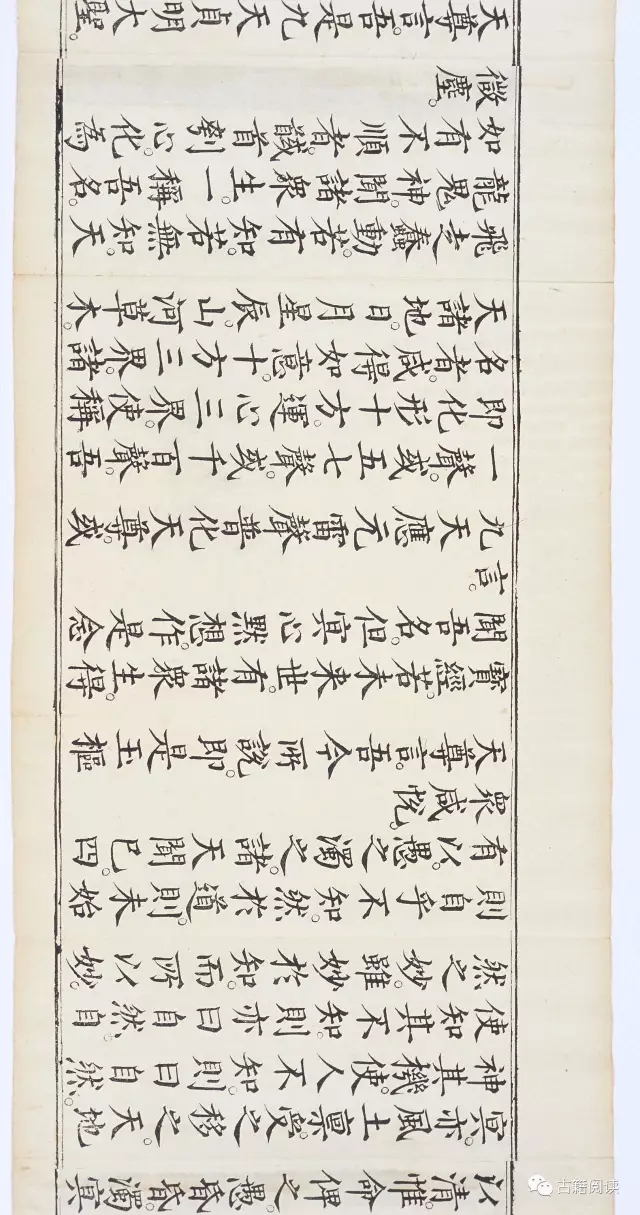 以清。惟命俾之愚。昏昏。濁冥
冥。亦風土稟受之移之。天地
神其機。使人不知。則曰自然。
使知其不知。則亦曰自然。自
然之妙。雖妙於知。而所以妙。
則自乎不知。然於道。則未始
有以愚之濁之。諸天聞已。四
衆咸悅。
天尊言。吾今所說。即是玉樞
寶經。若未来世。有諸衆生。得
聞吾名。但冥心默想。作是念
言。
九天應元雷聲普化天尊。或
一聲。或五七聲。或千百聲。吾
即化形十方。運心三界。使稱
名者。咸得如意。十方三界。諸
天諸地。日月星辰。山河草木。
飛走蠢動。若有知。若無知。天
龍鬼神。聞諸衆生。一稱吾名。
如有不順者。馘首刳心。化為
微塵。
天尊言。吾是九天貞明大聖。
古籍阅读